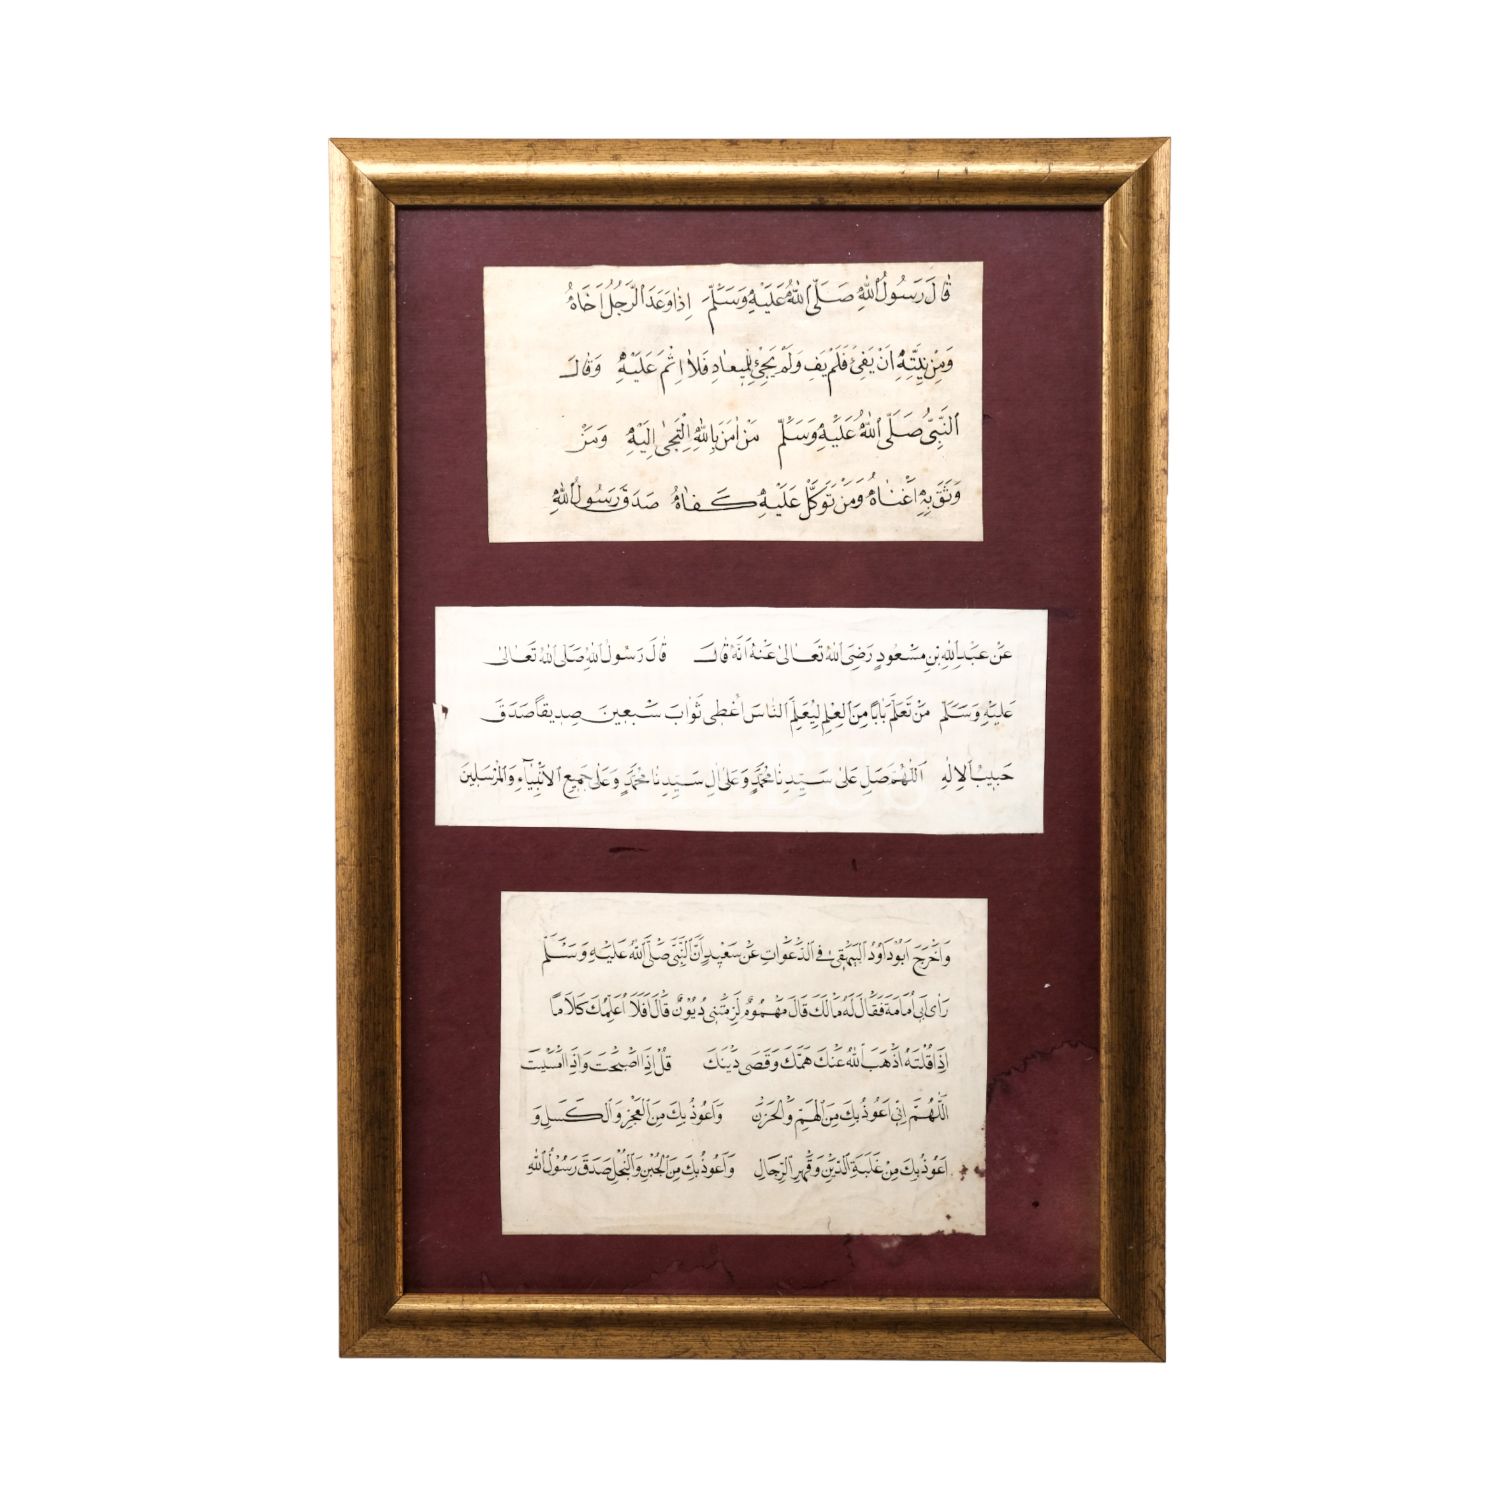 قَالَ رَسُولُ اللهِ صَلَّى اللهُ عَلَيْهِ وَسَلَّمَ اِذَا وَعَدَ الرَّجُلُ اَخَاهُ
وَمِنْ نِيَّتِهِ اَنْ يَفِىَ فَلَمْ يَفِ وَلَمْ يَجِئْ لِلْمِيعَادِ فَلَا اِثْمَ عَلَيْهِ وَقَالَ
النَّبِىُّ صَلَّى اللهُ عَلَيْهِ وَسَلَّمَ مَنْ اٰمَنَ بِاللهِ اِلْتَجٰى اِلَيْهِ وَمَنْ
وَثَقَ بِهِ اَغْنَاهُ وَمَنْ تَوَكَّلَ عَلَيْهِ كَفَاهُ صَدَقَ رَسُولُ اللهِ
عَنْ عَبْدِ اللهِ بْنِ مَسْعُودٍ رَضِىَ اللهُ تَعَالٰى عَنْهُ اَنَّهُ قَالَ قَالَ رَسُولُ اللهِ صَلَّى اللهُ تَعَالٰى
عَلَيْهِ وَسَلَّمَ مَنْ تَعَلَّمَ بَابًا مِنَ الْعِلْمِ لِيُعَلِّمَ النَّاسَ اُعْطِىَ ثَوَابَ سَبْعِينَ صِدِيقًا صَدَقَ
حَبِيبُ الْاِلٰهِ اَللّٰهُمَّ صَلِّ عَلٰى سَيِّدِنَا مُحَمَّدٍ وَعَلٰى اٰلِ سَيِّدِنَا مُحَمَّدٍ وَعَلٰى جَمِيعِ الْاَنْبِيَآءِ وَالْمُرْسَلِينَ
وَاَخْرَجَ اَبُودَاوُدَ الْبَيْهَقِىُّ فِى الدَّعَوَاتِ عَنْ سَعِيدٍ اَنَّ النَّبِىَّ صَلَّى اللهُ عَلَيْهِ وَسَلَّمَ
رَاٰى اَبِى اُمَامَةَ فَقَالَ لَهُ مَالَكَ قَالَ مَهْمُومٌ لَزِمَتْنِى دُيُونٌ قَالَ اَفَلَا اُعَلِّمُكَ كَلَامًا
اِذَا قُلْتَهُ اَذْهَبَ اللهُ عَنْكَ هَمَّكَ وَقَضٰى دَيْنَكَ قُلْ اِذَا اَصْبَحْتَ وَاِذَا اَمْسَيْتَ
اَللّٰهُمَّ اِنِّى اَعُوذُ بِكَ مِنَ الْهَمِّ وَالْحَزَنِ وَاَعُوذُ بِكَ مِنَ الْعَجْزِ وَالْكَسَلِ وَ
اَعُوذُ بِكَ مِنْ غَلَبَةِ الدَّيْنِ وَقَهْرِ الرِّجَالِ وَاَعُوذُ بِكَ مِنَ الْجُبْنِ وَالْبُخْلِ صَدَقَ رَسُولُ اللهِ